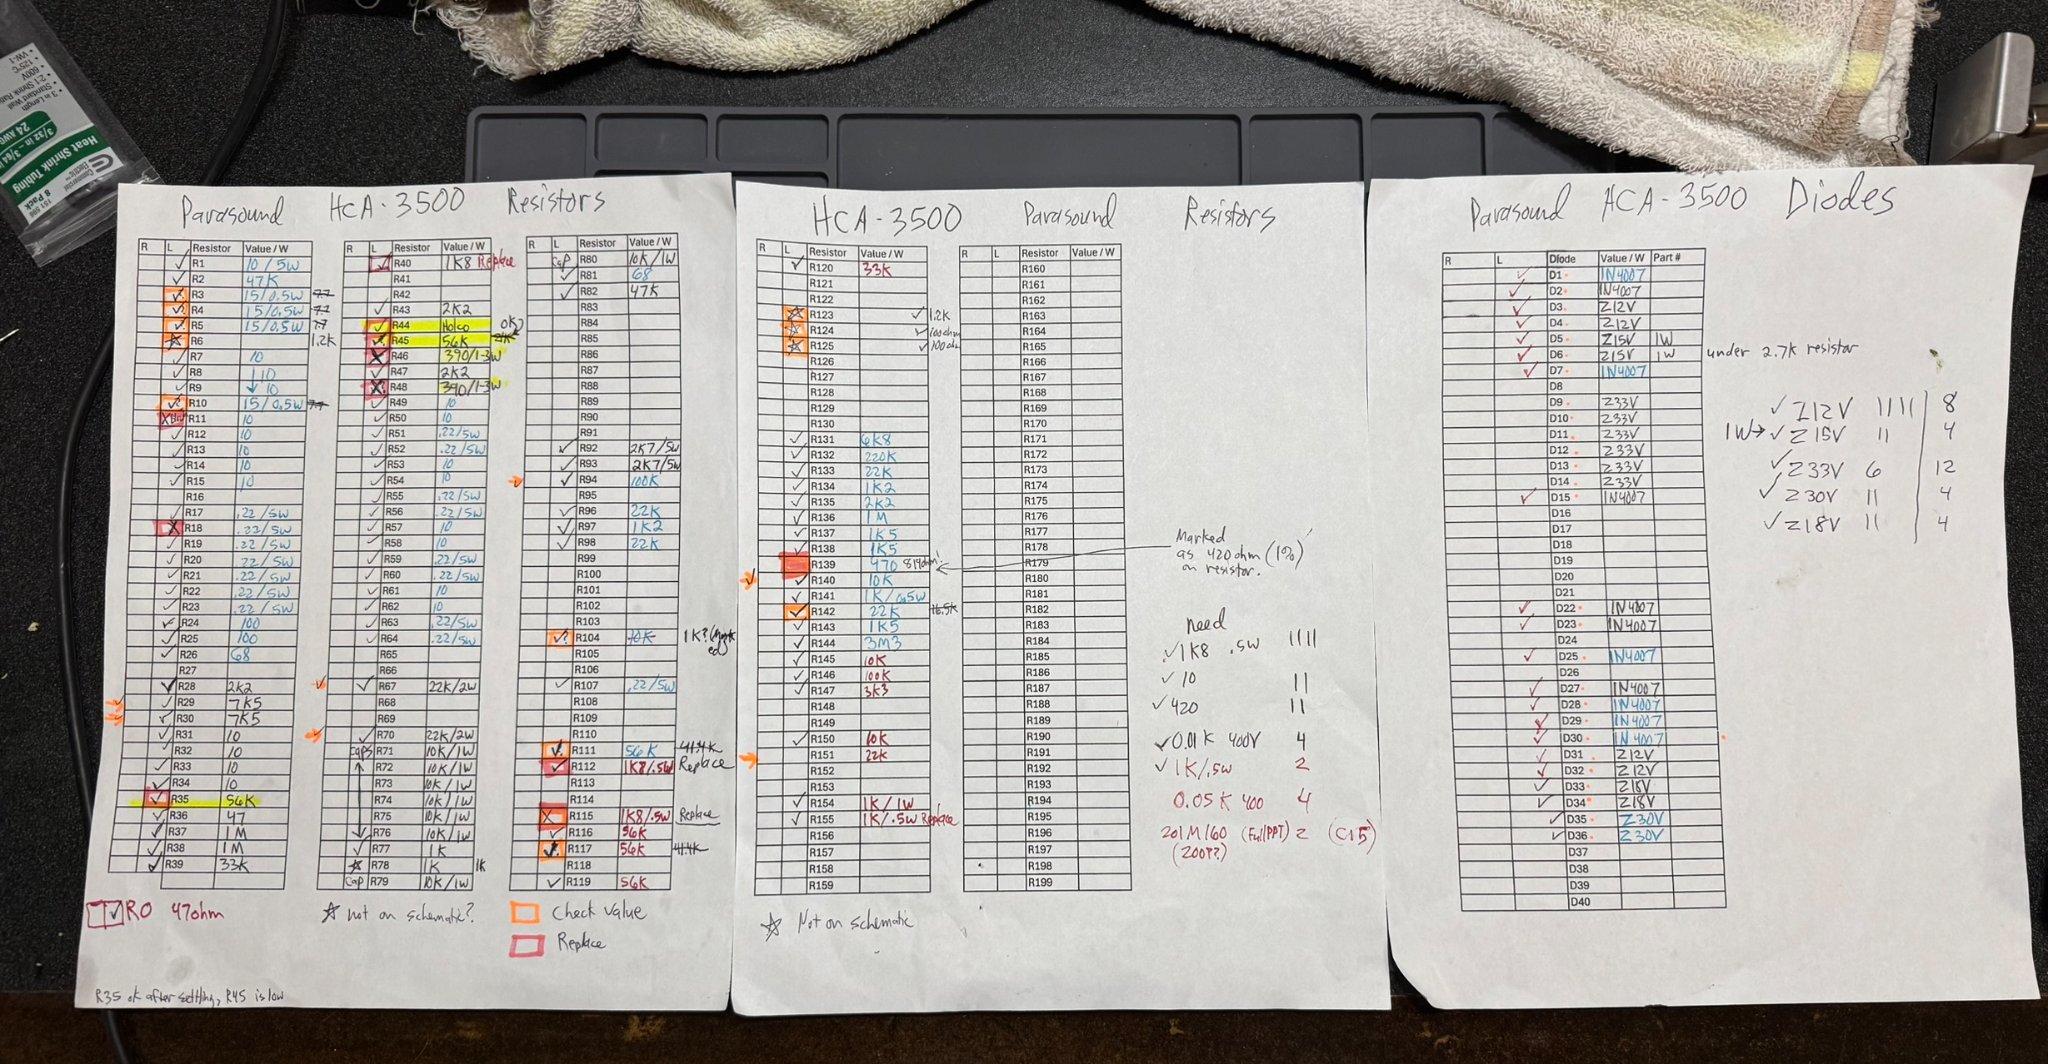 • 3 in Length
Standard Wall
2:1 Shrink Ratio
600V
125°C
VW-1
3/32 in - 3/64 in
24 AWG
Heat Shrink Tubing
Commercial Electric
8 Pack
Parasound HCA-3500 Resistors
R L Resistor Value / W
R1 10/5W
R2 47K
R3 15/0.5W 7.7
R4 15/0.5W 7.7
R5 15/0.5W 7.7
R6 1.2K
R7 10
R8 10
R9 10
R10 15/0.5W 7.7
R11 10
R12 10
R13 10
R14 10
R15 10
R16
R17 .22/5W
R18 .22/5W
R19 .22/5W
R20 .22/5W
R21 .22/5W
R22 .22/5W
R23 .22/5W
R24 100
R25 100
R26 68
R27
R28 2K2
R29 7K5
R30 7K5
R31 10
R32 10
R33 10
R34 10
R35 56K
R36 47
R37 1M
R38 1M
R39 33K
RO 47ohm
R35 ok after settling, R45 is low
R L Resistor Value / W
R40 1K8 Replace
R41
R42
R43 2K2
R44 Holco
R45 56K OK?
R46 390/1-3W
R47 2K2
R48 390/1-3W
R49 10
R50 10
R51 .22/5W
R52 .22/5W
R53 10
R54 10
R55 .22/5W
R56 .22/5W
R57 10
R58 10
R59 .22/5W
R60 .22/5W
R61 10
R62 10
R63 .22/5W
R64 .22/5W
R65
R66
R67 22K/2W
R68
R69
R70 22K/2W
caps R71 10K/1W
R72 10K/1W
R73 10K/1W
R74 10K/1W
R75 10K/1W
R76 10K/1W
R77 1K
R78 1K 1K
Cap R79 10K/1W
☆ not on schematic?
R L Resistor Value / W
Cap R80 10K/1W
R81 68
R82 47K
R83
R84
R85
R86
R87
R88
R89
R90
R91
R92 2K7/5W
R93 2K7/5W
R94 100K
R95
R96 22K
R97 1K2
R98 22K
R99
R100
R101
R102
R103
R104 10K 1K?
R105
R106
R107 .22/5W
R108
R109
R110
R111 56K 41.4K
R112 1K8/.5W Replace
R113
R114
R115 1K8/.5W Replace
R116 56K
R117 56K 41.4K
R118
R119 56K
Check value
Replace
HCA-3500 Parasound Resistors
R L Resistor Value / W
R120 33K
R121
R122
R123 1.2K
R124 100ohm
R125 100ohm
R126
R127
R128
R129
R130
R131 6K8
R132 220K
R133 22K
R134 1K2
R135 2K2
R136 1M
R137 1K5
R138 1K5
R139 470 814ohm
R140 10K
R141 1K/0.5W
R142 22K 16.5K
R143 1K5
R144 3M3
R145 10K
R146 100K
R147 3K3
R148
R149
R150 10K
R151 22K
R152
R153
R154 1K/1W
R155 1K/.5W Replace
R156
R157
R158
R159
☆ Not on schematic
R L Resistor Value / W
R160
R161
R162
R163
R164
R165
R166
R167
R168
R169
R170
R171
R172
R173
R174
R175
R176
R177
R178
R179
R180
R181
R182
R183
R184
R185
R186
R187
R188
R189
R190
R191
R192
R193
R194
R195
R196
R197
R198
R199
Marked
as 420ohm (1%)
on resistor.
need
1K8 .5W IIII
10 II
420 II
0.01K 400V 4
1K/.5W 2
0.05K 400 4
201M/60 (Full/PPT) 2 (C15)
(200??)
Parasound HCA-3500 Diodes
R L Diode Value / W Part #
D1 1N4007
D2 1N4007
D3 Z12V
D4 Z12V
D5 Z15V 1W
D6 Z15V 1W under 2.7K resistor
D7 1N4007
D8
D9 Z33V
D10 Z33V
D11 Z33V
D12 Z33V
D13 Z33V
D14 Z33V
D15 1N4007
D16
D17
D18
D19
D20
D21
D22 1N4007
D23 1N4007
D24
D25 1N4007
D26
D27 1N4007
D28 1N4007
D29 1N4007
D30 1N4007
D31 Z12V
D32 Z12V
D33 Z18V
D34 Z18V
D35 Z30V
D36 Z30V
D37
D38
D39
D40
Z12V IIII 8
1W→ Z15V II 4
Z33V 6 12
Z30V II 4
Z18V II 4